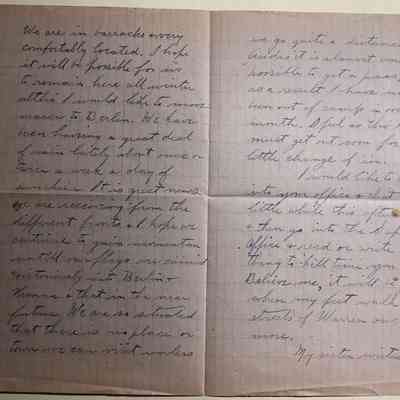 We are in barracks & very
comfortably located. I hope
it will be possible for us
to remain here all winter
altho I would like to move
nearer to Berlin. We have
been having a great deal
of rain lately about once or
twice a week a day of
sunshine. It is great news
we are receiving from the
different fronts & I hope we
continue to gain momentum
until our flags are carried
victoriously into Berlin &
Vienna & that in the near
future. We are so situated
that there is no place or
town we can visit unless
we go quite a distance
and it is almost im
possible to get a pass,
as a result I have n
been out of camp in ov
month. I feel as tho I
must get out soon for
little change of air.
I would like to
into your office & chat
little while this aft
& then go into the
office & read or write
thing to kill time you
Believe me, it will
when my feet walk
streets of Warren on
more.
My sister writes